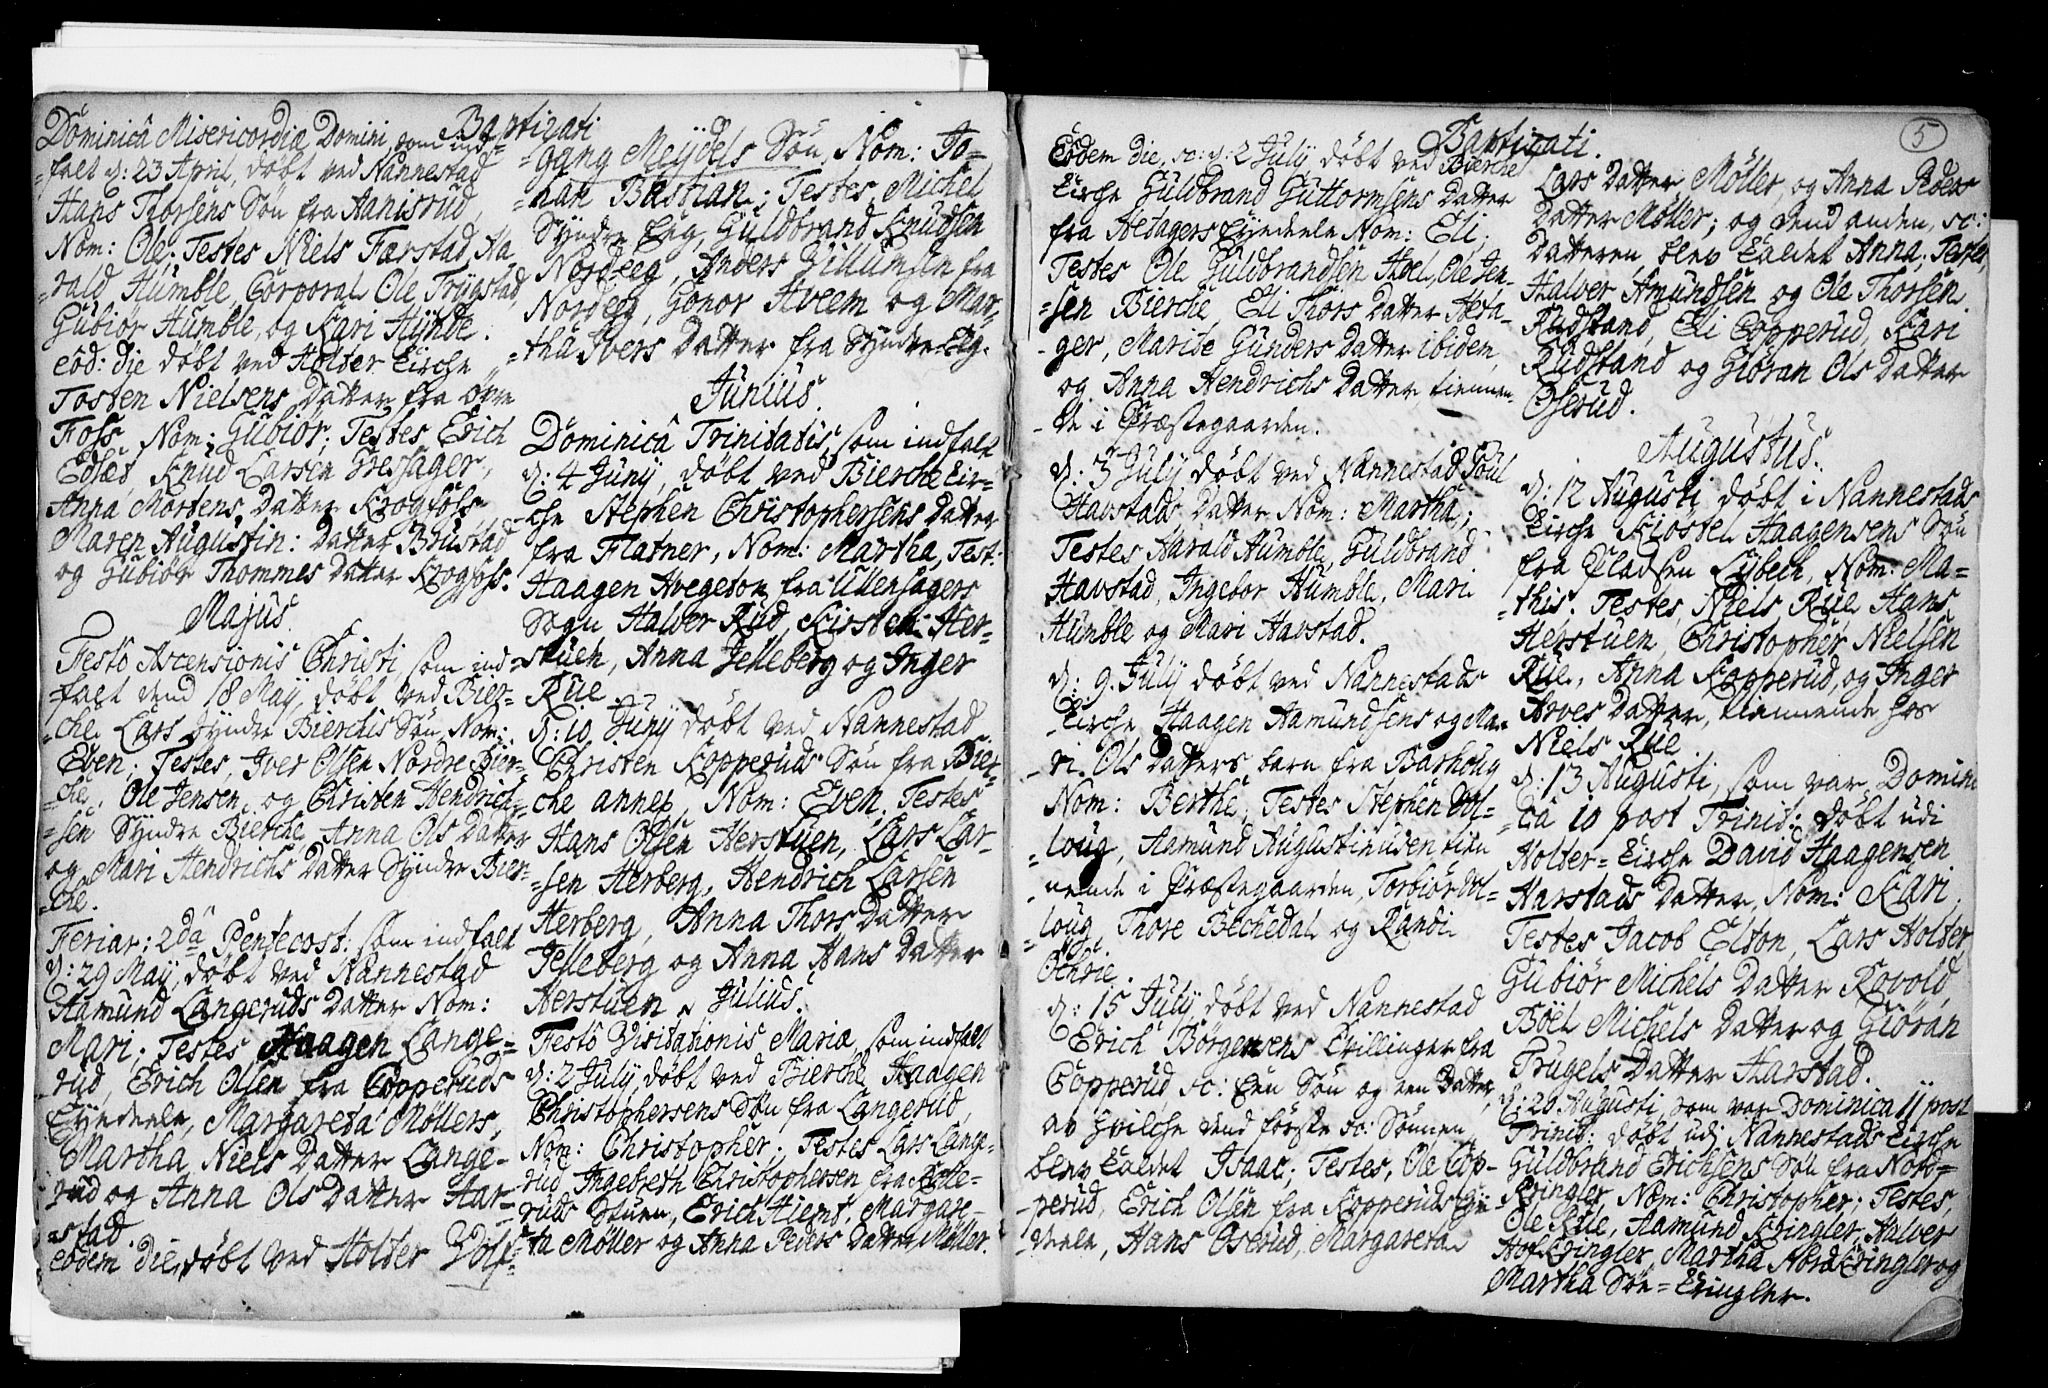 Baptizati
Dominicâ Misericordiæ Domini, som ind=
=falt d: 23 April, döbt ved Nannestad
Hans Thorsens Sön fra Aanisrud,
Nom: Ole; Testes Niels Færstad, Ha
=rald Humble, Corporal Ole Trygstad,
Gubiör Humble, og Kari Hynde.
Eod: die döbt ved Holter Kirche
Tosten Nielsens Datter fra övre
Foss, Nom: Gubiör; Testes, Erich
Knud Larsen
Anna Mortens Datter Krogfoss
Maren Augustin: Datter Brustad
og Gubiör Thommes Datter Krogfoss.
Majus.
Festo Ascensionis Christi, som ind=
=falt dend 18 Maij, döbt ved Bier=
=che Lars Syndre Bierchis Sön, Nom:
Even; Testes, Iver Olsen Nordre Bier=
=che, Ole Jensen, og Christen Hendrich=
=sen Syndre Bierche, Anna Ols Datter
og Mari Hendrichs Datter Syndre Bier=
=che.
Feriar: 2da Pentecost: som indfalt
d: 29 Maij, döbt ved Nannestad
Aamund Langeruds Datter Nom:
Mari; Testes Haagen Lange=
rud, Erich Olsen fra Copperuds
Eyndeele, Margareta Möllers,
Martha Niels Datter Lange=
rud og Anna Ols Datter Har=
=stad.
Eodem die, döbt ved Holter Wolf=
=gang Meydels Sön, Nom: Jo=
=han Bastian; Testes, Michel
Syndre Eeg, Guldbrand Knudsen
Nordeeg, Anders Gullumsen fra
Nordeeg, Gonor Hveem og Mar=
=tha Ivers Datter fra Syndre Eeg.
Junius.
Dominicâ Trinitatis, som indfalt
d: 4 Junij, döbt ved Bierche Kir=
che Stephen Christophersens Datter
fra Flatner, Nom: Martha, Test:
Haagen Hvegeton fra Ullensagers
Sogn, Halver Rud, Kirsten Her=
stuen, Anna Jelleberg og Inger
Rüe.
d: 10 Junij döbt ved Nannestad
Christen Kopperuds Sön fra Bier=
che annex, Nom: Even, Testes
Hans Olsen Herstuen, Lars Lar=
=sen Herberg, Hendrich Larsen
Herberg, Anna Thors Datter
Jelleberg og Anna Hans Datter
Herstuen.
Julius.
Festo Visitationis Mariæ, som indfalt
d: 2 July, döbt ved Bierche Haagen
Christophersens Sön fra Langerud
Nom: Christopher; Testes Lars Lange=
rud, Ingebreth Christophersen fra Kelle=
ruds Stuen, Erich Hiemt, Margare=
ta Möller og Anna Peders Datter Möller.
5
Baptizati.
Eodem die, sc: d: 2 July döbt ved Bierche
Kirche Guldbrand Guttormsens Datter
fra Aetagers Eyndeele Nom: Eli;
Testes Ole Guldbrandsen Hvel, Ole Jen=
=sen Bierche, Eli Thors Datter Aeta=
ger, Marite Gunders Datter ibidem,
og Anna Hendrichs Datter tienen=
de i Præstegaarden.
d: 3 July döbt ved Nannestad Poul
Havstads Datter Nom: Martha;
Testes Harald Humble, Guldbrand
Havstad, Ingebor Humble, Mari
Humble og Mari Havstad.
d: 9. July döbt ved Nannestads
Kirche Haagen Aamundsens og Ma=
ri Ols Datters barn fra Barhoug
Nom: Berthe, Testes Stephen Vol=
=loug, Aamund Augustinusen tien
nende i Præstegaarden, Torbiör Vol=
=loug, Thore Bechedal og Randi
Ochrie.
d: 15 July, döbt ved Nannestad
Erich Börgensens Tvillinger fra
Copperud sc: Een Sön og een Datter,
av Hvilche dend förste sc: Sönnen,
blev kaldet Isaac; Testes, Ole Cop=
perud, Erich Olsen fra Kopperuds Eyn
deele, Hans Oserud, Margareta
Lars Datter Möller, og Anna Peders
Datter Möller; og dend anden, sc:
Datteren, blev kaldet Anna; Testes,
Halver Amundsen og Ole Thorsen
Rudstand, Eli Copperud, Kari
Rudstand og Giöran Ols Datter
Oserud.
Augustus.
d: 12 Augusti döbt i Nannestads
Kirche Kiostel Haagensens Sön
fra Pladsen Lybech, Nom: Ma=
=this. Testes, Niels Rüe, Hans
Herstuen, Christopher Nielsen
Rüe, Anna Kopperud, og Inger
Arves Datter, tiennende hos
Niels Rüe.
d: 13 Augusti, som var Domini
=câ 10 post Trinit: döbt udi
Holter=Kirche David Haagensen
Harstads Datter, Nom: Kari,
Testes Jacob Elton, Lars Holter,
Gubiör Michels Datter Rovold,
Böel Michels Datter og Giöran
Trugels Datter Harstad.
d: 20 Augusti, som var Dominica 11 post
Trinit: döbt udj Nannestads Kirche
Guldbrand Erichsens Sön fra Nord=
=Kringler, Nom: Christopher; Testes,
Ole Rüe, Aamund Kringler, Halver
Hofkringler, Martha Nordkringler og
Martha Sör=Kringler.